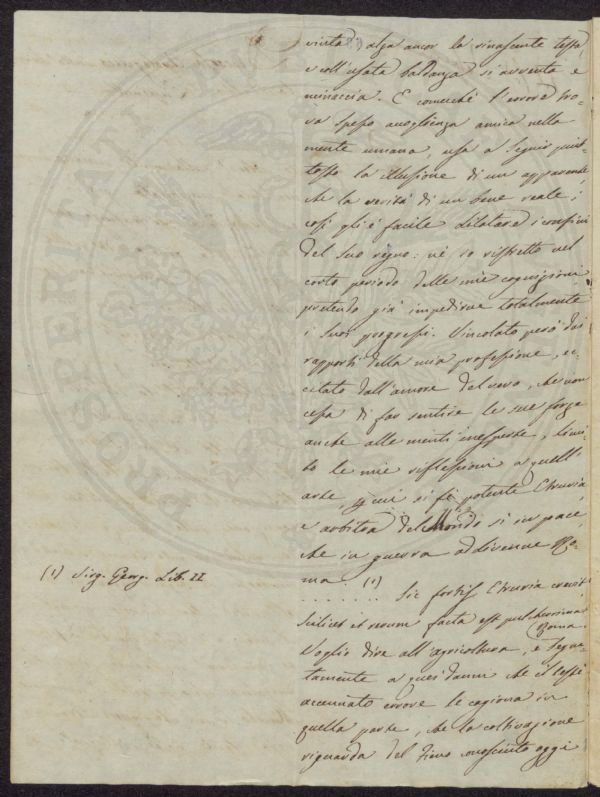 vinta, alza ancor la rinascente testa,
e coll'usata baldanza si avventa e
minaccia. E comecchè l'errore tro-
va spesso accoglienza amica nella
mente umana, usa a seguir piut-
tosto la illusione di un apparente,
che la verità di un bene reale;
così gli è facile dilatare i confini
del suo regno: nè io ristretto nel
corto periodo delle mie cognizioni
pretendo già impedirne totalmente
i suoi progressi. Vincolato però dai
rapporti della mia professione, ec-
citato dall'amore del vero, che non
cessa di far sentire le sue forze
anche alle menti inesperte, limi-
to le mie riflessioni a quell'
arte, per cui si fè potente Etruria,
e arbitra del Mondo sì in pace,
che in guerra addivenne Ro-
ma. (1)
(1) Virg. Georg. Lib. II
........ Sic fortis Etruria crevit
Scilicet et rerum facta est pulcherrima
Roma.
Voglio dire all'agricoltura, e segna-
tamente a quei danni che il testè
accennato errore le cagiona in
quella parte, che la coltivazione
riguarda del Fieno conosciuto oggi